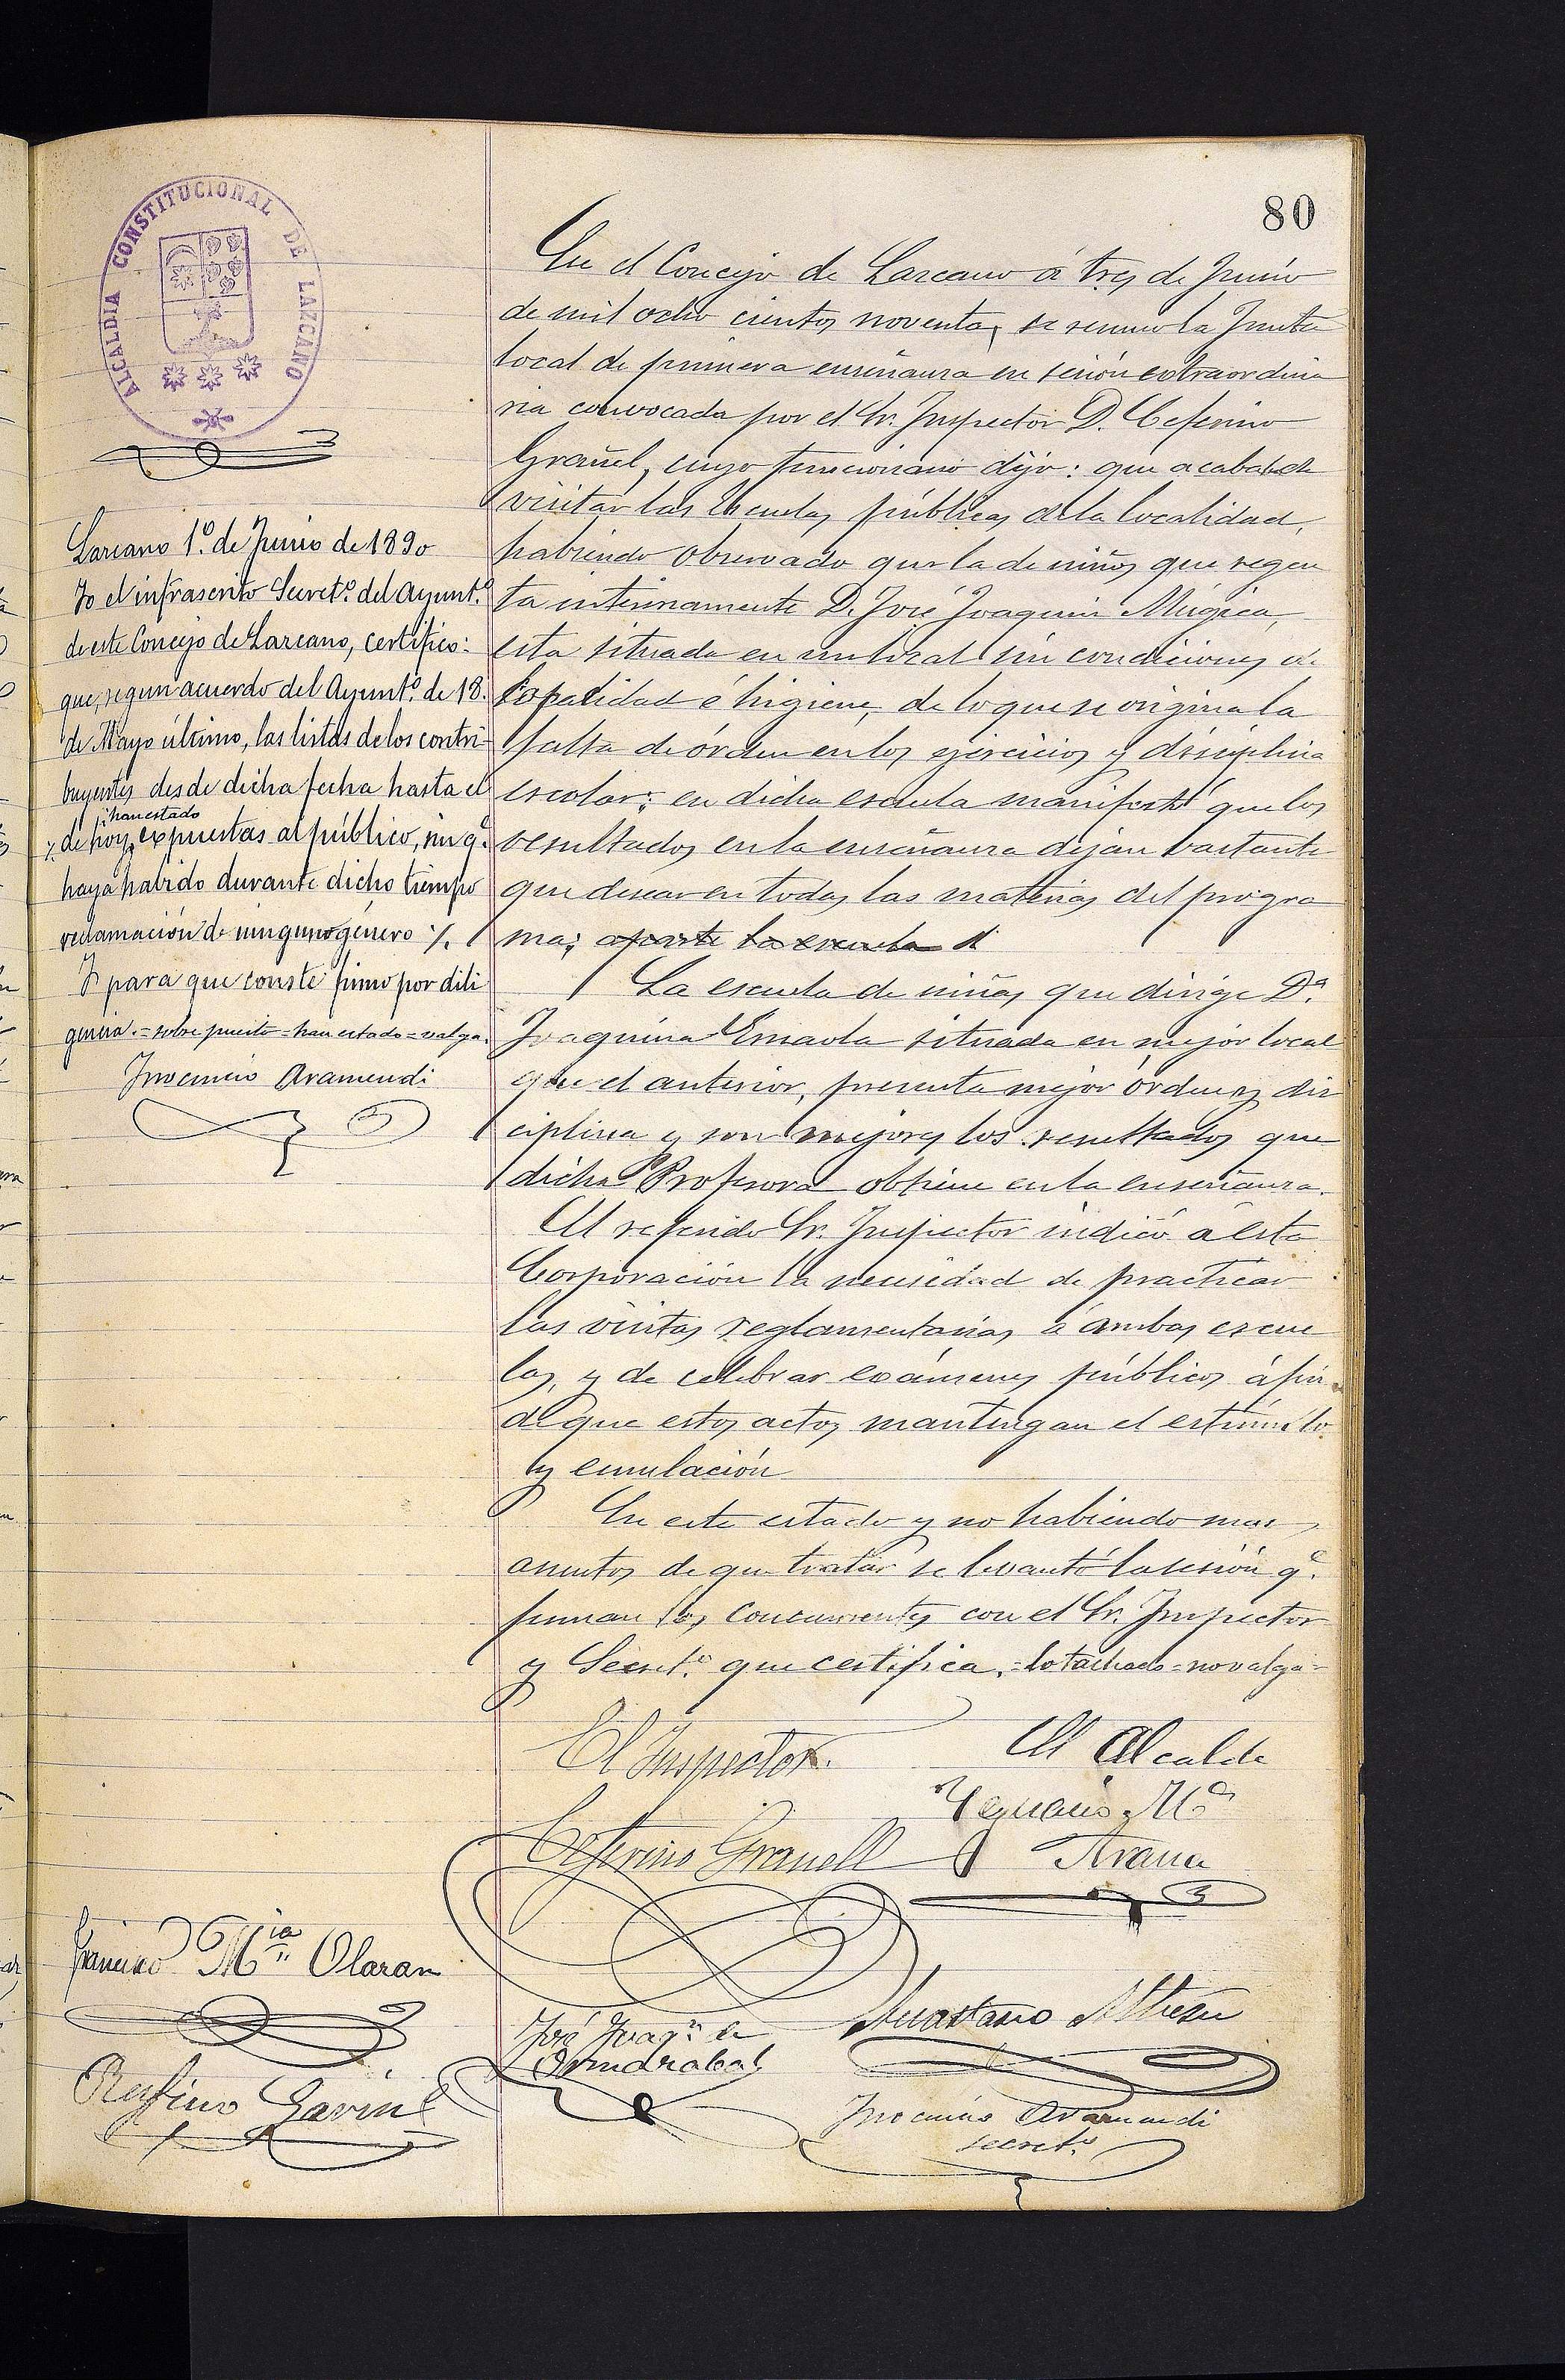 80
ALCALDIA CONSTITUCIONAL DE LAZCANO
Lazcano 1º de Junio de 1890
Yo el infrascrito Secretº del Ayuntº
de este Concejo de Lazcano, certifico:
que, segun acuerdo del Ayuntº de 18.
de Mayo último, las listas de los contri-
buyentes desde dicha fecha hasta el
han estado
de hoy, expuestas al público, sin q.e
haya habido durante dicho tiempo
reclamación de ninguno género
Y para que conste firmo por dili
gencia.=sobre puesto=han estado=valga.
Inocencio Aramendi
En el Concejo de Lazcano á tres de Junio
de mil ocho cientos noventa, se reunió la Junta
local de primera enseñanza en sesión extraordina
ria convocada por el Sr. Inspector D. Ceferino
Grañel, cuyo funcionario dijo: que acaba de
visitar las Escuelas públicas de la localidad,
habiendo observado que la de niños que regen
ta interinamente D. José Joaquin Múgica,
esta situada en un local sin condiciones de
capacidad é higiene, de lo que se origina la
falta de órden en los ejercicios y disciplina
escolar; en dicha escuela manifestó que los
resultados en la enseñanza dejan bastante
que desear en todas las materias del progra
ma; aparte la escuela d
La escuela de niñas que dirige D.ª
Joaquina Ensaola situada en mejor local
que el anterior, presenta mejor órden y dis
ciplina y son mejores los resultados que
dicha Profesora obtiene en la enseñanza.
El referido Sr. Inspector indicó á esta
Corporación la necesidad de practicar
las visitas reglamentarias á ambas escue
las, y de celebrar exámenes públicos á fin
de que estos actos mantengan el estímulo
y emulación
En este estado y no habiendo mas
asuntos de que tratar se levantó la sesión q.e
firman los concurrentes con el Sr. Inspector
y Secret.º que certifica.=lo tachado=no valga=
El Inspector.
El Alcalde
Ceferino Granell
Mª
Arana
Francisco Mía Olaran
José Joaqn de
Albisu
Rufino
Inocencio Aramendi
secret.º